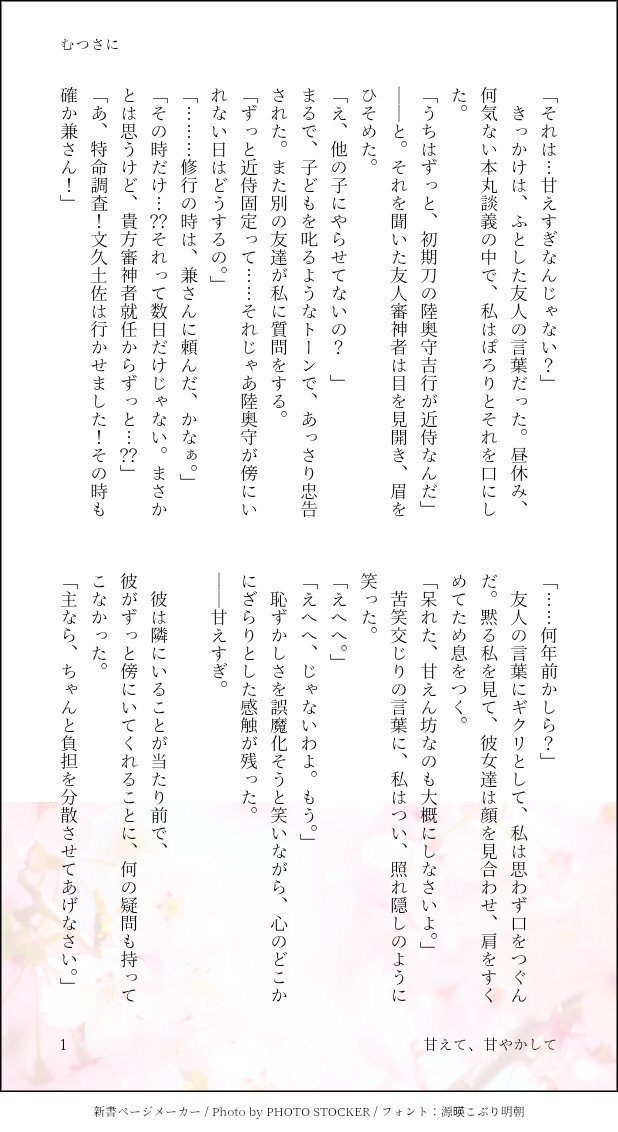 むつさに
「それは…甘えすぎなんじゃない？」
　きっかけは、ふとした友人の言葉だった。昼休み、
何気ない本丸談義の中で、私はぽろりとそれを口にし
た。
「うちはずっと、初期刀の陸奥守吉行が近侍なんだ」
――と。それを聞いた友人審神者は目を見開き、眉を
ひそめた。
「え、他の子にやらせてないの？　」
まるで、子どもを叱るようなトーンで、あっさり忠告
された。また別の友達が私に質問をする。
「ずっと近侍固定って……それじゃあ陸奥守が傍にい
れない日はどうするの。」
「………修行の時は、兼さんに頼んだ、かなぁ。」
「その時だけ…??それって数日だけじゃない。まさか
とは思うけど、貴方審神者就任からずっと…??」
「あ、特命調査！文久土佐は行かせました！その時も
確か兼さん！」
「……何年前かしら？」
　友人の言葉にギクリとして、私は思わず口をつぐん
だ。黙る私を見て、彼女達は顔を見合わせ、肩をすく
めてため息をつく。
「呆れた、甘えん坊なのも大概にしなさいよ。」
　苦笑交じりの言葉に、私はつい、照れ隠しのように
笑った。
「えへへ。」
「えへへ、じゃないわよ。もう。」
　恥ずかしさを誤魔化そうと笑いながら、心のどこか
にざらりとした感触が残った。
――甘えすぎ。
　彼は隣にいることが当たり前で、
彼がずっと傍にいてくれることに、何の疑問も持って
こなかった。
「主なら、ちゃんと負担を分散させてあげなさい。」
1
甘えて、甘やかして
新書ページメーカー / Photo by PHOTO STOCKER / フォント：源暎こぶり明朝